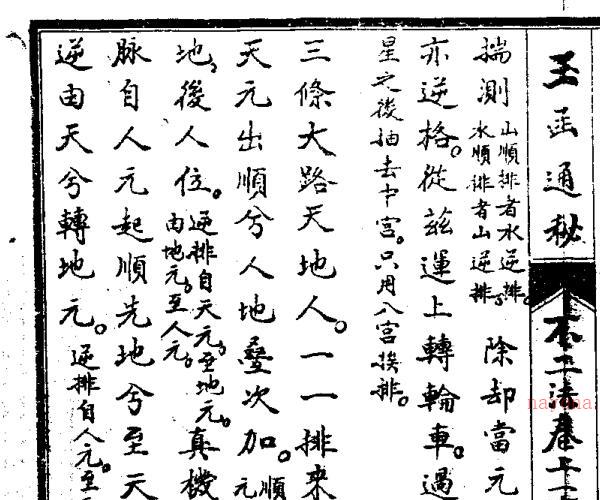 玉函通秘 不二法卷上
揣測山順排者水逆排。水順排者山逆排。除却當元
亦逆格。從茲運上轉輪車。過
星之後抽去中宮。只用八宮挨排。
三條大路天地人。一一排來
天元出順兮人地疊次加。順元
地,後人位。逆排自天元。至地元。由地元。至人元。真機
脈自人元起順先地兮至天
逆由天兮轉地元。逆排自人元。至